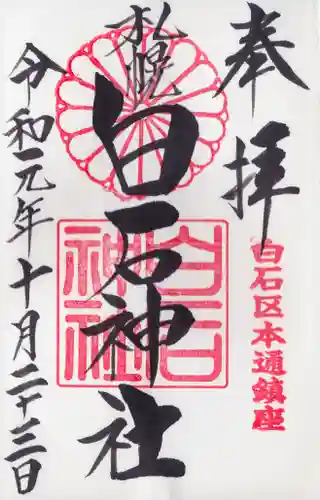 奉拝
白石区本通鎮座
札幌
白石神社
白石神社
令和元年十月二十三日